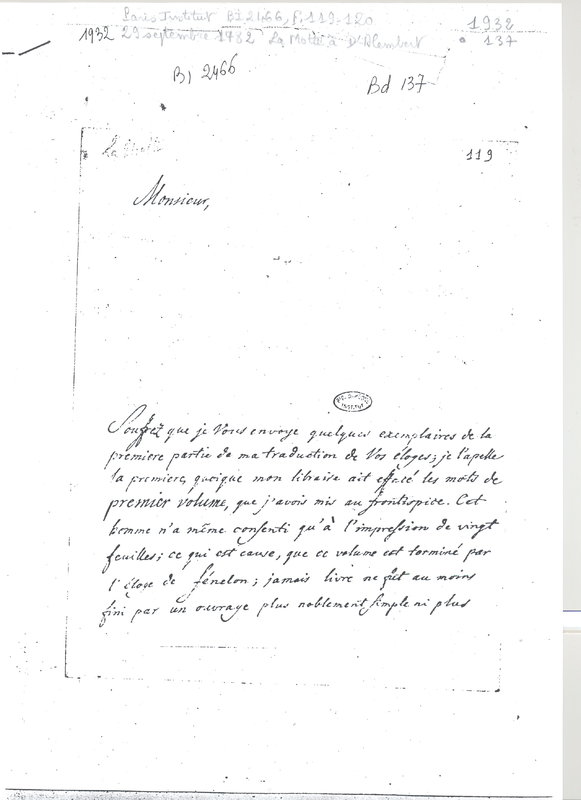 Paris Institut BI 2466, f. 119-120
1932
1932 29 septembre 1782 La Motte à D'Alembert
137
BI 2466
Bd 137
La Motte
119
Monsieur,
Souffrez que je Vous envoye quelques exemplaires de la
premiere partie de ma traduction de Vos éloges; je l'apelle
la premiere, quoique mon libraire ait effacé les mots de
premier volume, que j'avois mis au frontispice. Cet
homme n'a même consenti qu'à l'impression de vingt
feuilles; ce qui est cause, que ce volume est terminé par
l'éloge de fénelon; jamais livre ne fut au moins
fini par un ouvrage plus noblement simple ni plus